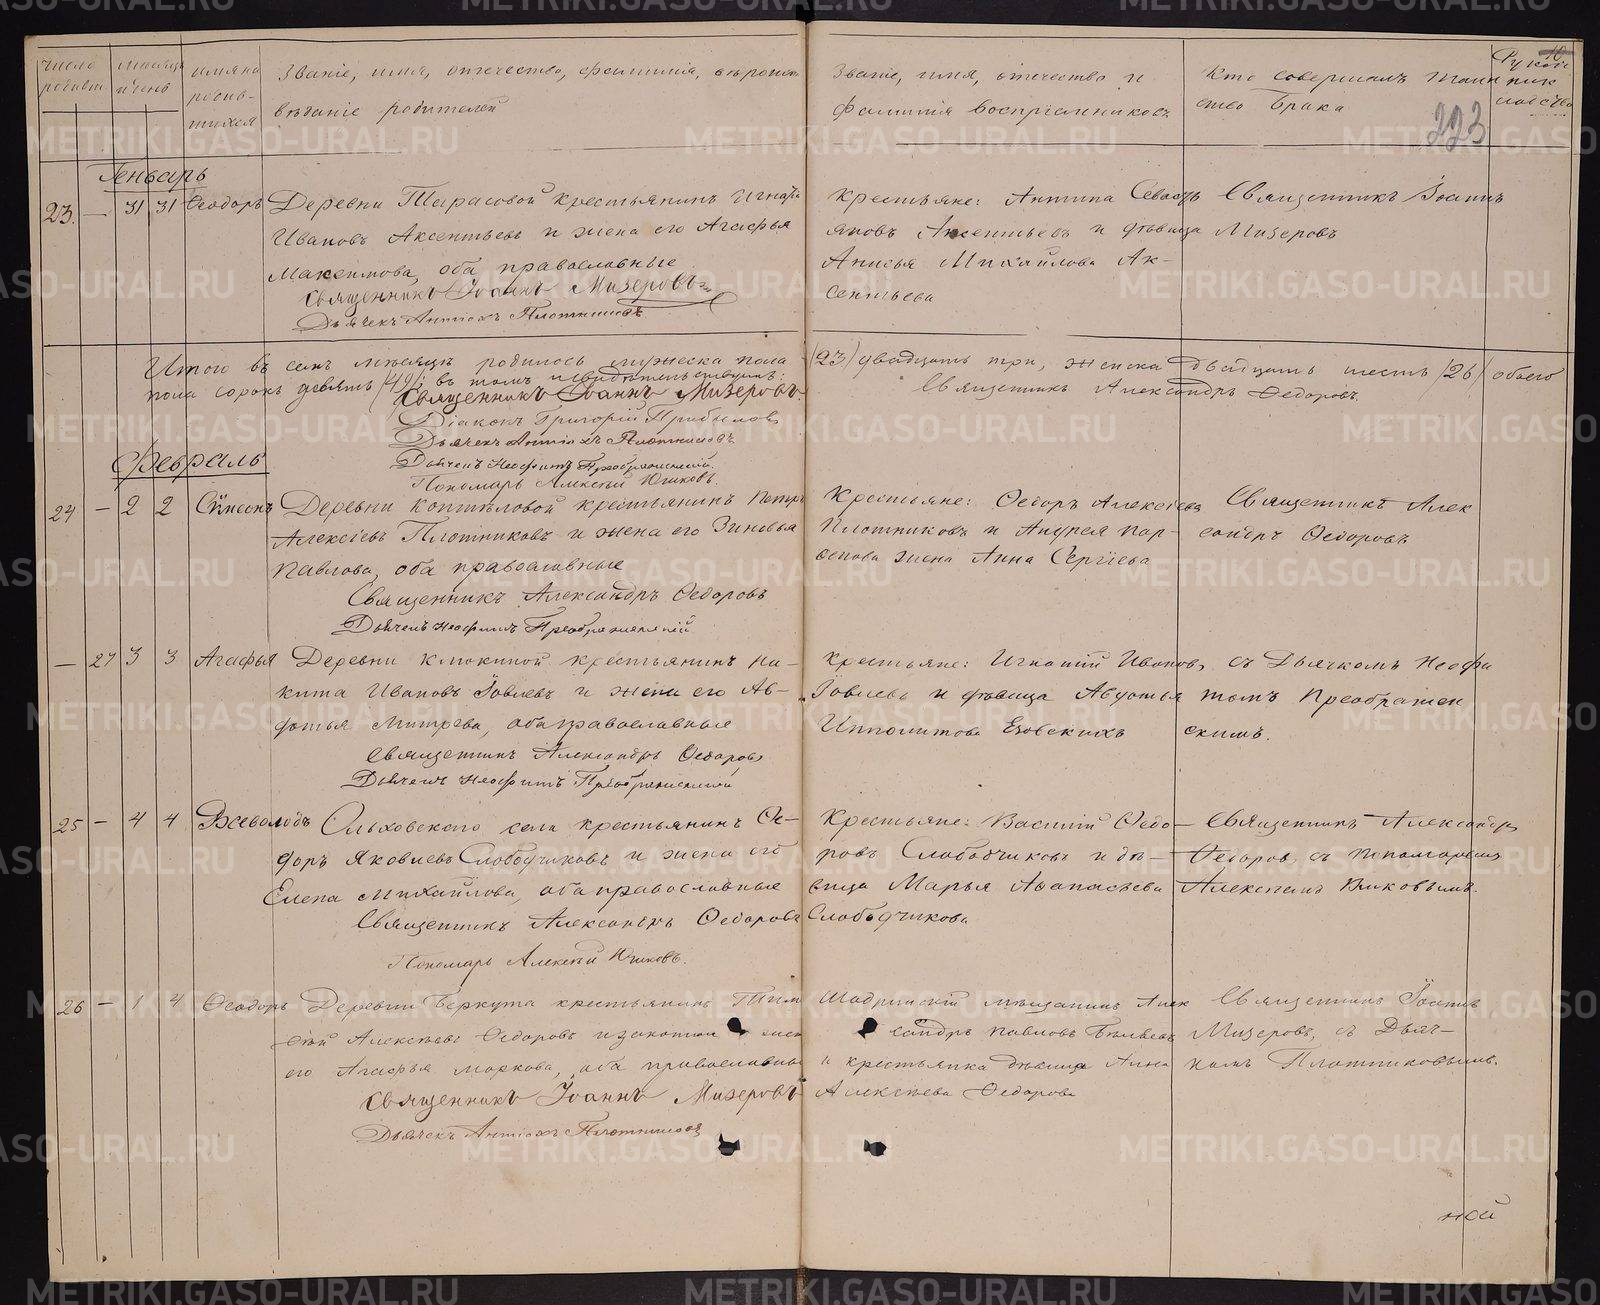 число родивш
Мѣсяцъ и день
имяна родив-
шихся
Званіе, имя, отечество, фамилія, вѣроиспо
вѣданіе родителей
Званіе, имя, отечество и
фамилія воспріемниковъ
Кто совершалъ таин
ство
Рукопи
223
Генварь
23. — 31 31 Ѳеодоръ Деревни Тарасовой крестьянинъ Игнатій
Ивановъ Аксентьевъ и жена его Агафья
Максимова, оба православные
Священникъ Іоаннъ Мизеровъ
Дьячекъ Антіохъ Плотниковъ
Крестьяне: Антипа Севасть
яновъ Аксентьевъ и дѣвица
Анисья Михайлова Ак-
сентьева
Священникъ Іоаннъ
Мизеровъ
Итого въ семъ мѣсяцѣ родилось мужеска пола /23/ двадцать три, женска двадцать шесть /26/ обоего
пола сорокъ девять /49/; въ томъ и свидѣтельствуемъ:
Священникъ Іоаннъ Мизеровъ
Священникъ Александръ Ѳедоровъ.
Діаконъ Григорій Прибылов
Дьячекъ Антіохъ Плотниковъ
Дьячекъ Неофитъ Преображенскій
Пономарь Алексѣй Юшковъ.
Февраль
24 — 2 2 Сѵмеонъ Деревни Коптѣловой крестьянинъ Петръ
Алексіевъ Плотниковъ и жена его Зиновья
Павлова, оба православные
Священникъ Александръ Ѳедоровъ
Дьячекъ Неофитъ Преображенскій
Крестьяне: Ѳедоръ Алексіевъ
Плотниковъ и Андрея Пар-
ѳенова жена Анна Сергіева
Священникъ Алек
сандръ Ѳедоровъ
— 27 3 3 Агафья Деревни Клюкиной крестьянинъ Ни-
кита Ивановъ Іовлевъ и жена его Ав-
дотья Митрева, оба православные
Священникъ Александръ Ѳедоровъ
Дьячекъ Неофитъ Преображенскій
Крестьяне: Игнатій Ивановъ
Іовлевъ и дѣвица Авдотья
Ипполитова Езовскихъ
съ Дьячкомъ Неофи
томъ Преображен
скимъ.
25 — 4 4 Всеволодъ Ольховскаго села крестьянинъ Ѳе-
доръ Яковлевъ Слободчиковъ и жена его
Елена Михайлова, оба православные
Священникъ Александръ Ѳедоровъ
Пономарь Алексѣй Юшковъ.
Крестьяне: Василій Ѳедо-
ровъ Слободчиковъ и дѣ-
вица Марья Аѳанасьева
Слободчикова
Священникъ Александръ
Ѳедоровъ съ пономаремъ
Алексѣемъ Юшковымъ.
26 — 1 4 Ѳеодоръ Деревни Беркута крестьянинъ Тимо
ѳей Алексѣевъ Ѳедоровъ и законная жена
его Агафья Маркова, оба православные
Священникъ Іоаннъ Мизеровъ
Дьячекъ Антіохъ Плотниковъ
Шадринскій мѣщанинъ Алек
сандръ Павловъ Бѣляевъ
и крестьянка дѣвица Анна
Алексѣева Ѳедорова
Священникъ Іоаннъ
Мизеровъ, съ Дьяч-
комъ Плотниковымъ.
ной
METRIKI.GASO-URAL.RU